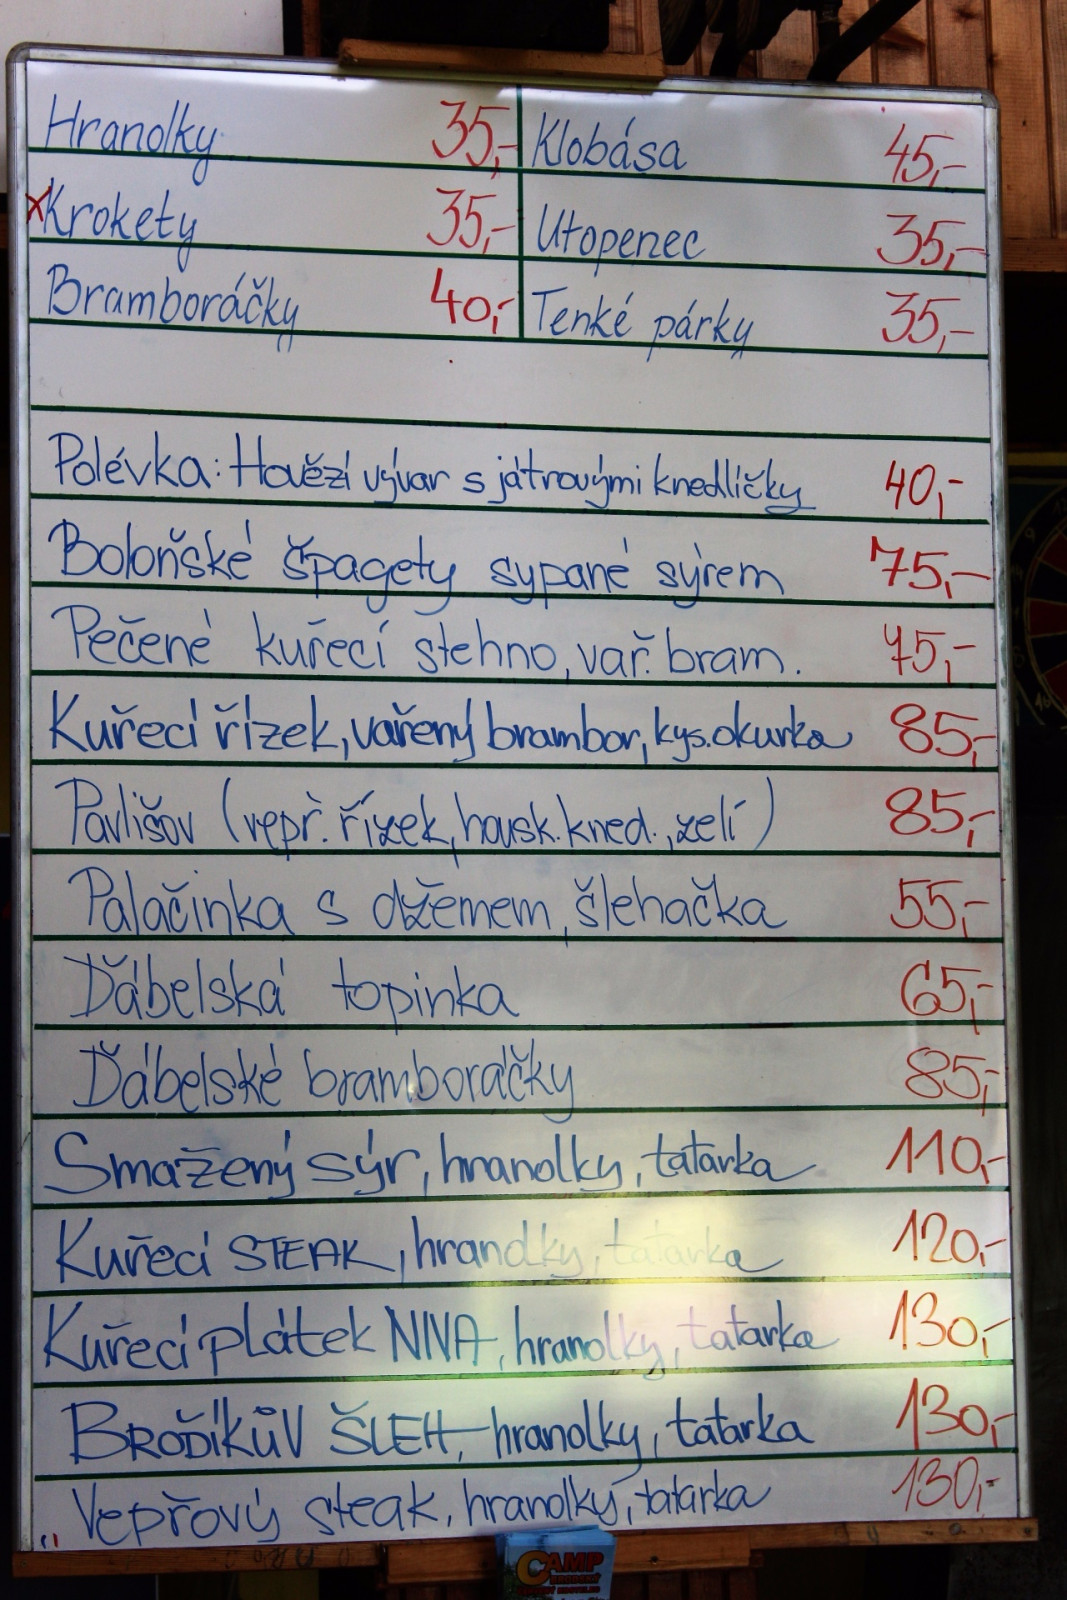 Hranolky 35,- Klobása 45,-
xKrokety 35,- Utopenec 35,-
Bramboráčky 40,- Tenké párky 35,-
Polévka: Hovězí vývar s játrovými knedlíčky 40,-
Boloňské špagety sypané sýrem 75,-
Pečené kuřecí stehno, vař. bram. 75,-
Kuřecí řízek, vařený brambor, kys. okurka 85,-
Pavlišov (vepř. řízek, housk. kned., zelí) 85,-
Palačinka s džemem, šlehačka 55,-
Ďábelská topinka 65,-
Ďábelské bramboráčky 85,-
Smažený sýr, hranolky, tatarka 110,-
Kuřecí STEAK, hranolky, tatarka 120,-
Kuřecí plátek NIVA, hranolky, tatarka 130,-
BRODÍKŮV ŠLEH, hranolky, tatarka 130,-
Vepřový steak, hranolky, tatarka 130,-
CAMP